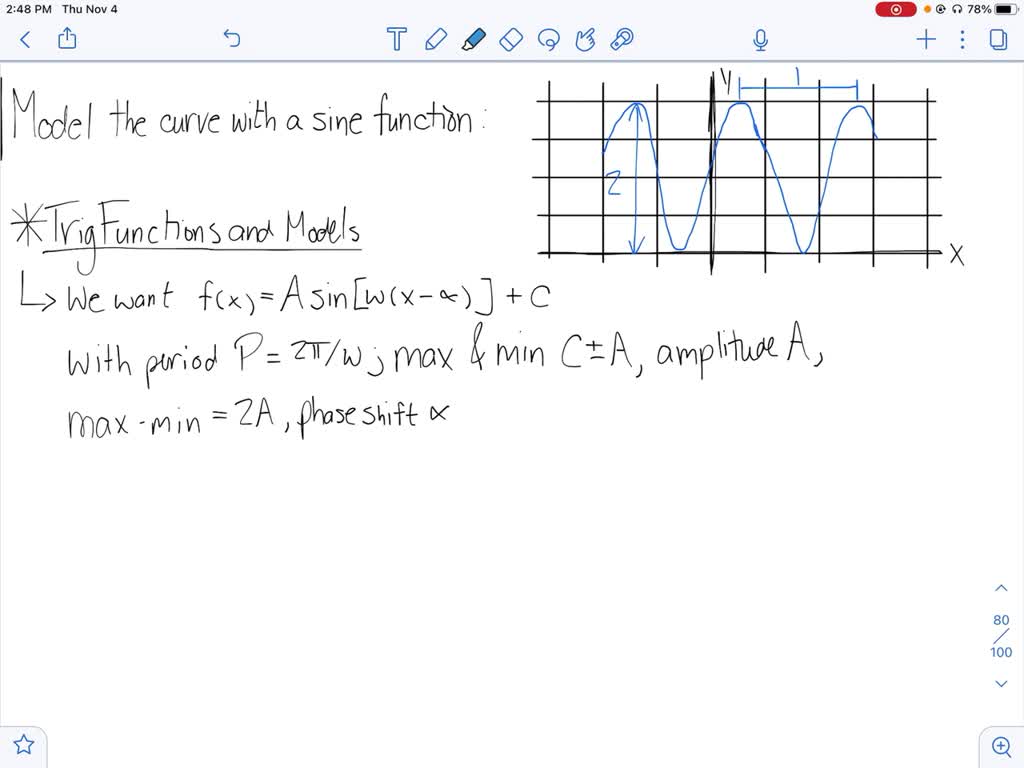 2:48 PM Thu Nov 4 78%
T
Model the curve with a sine function:
y
1
2
x
*Trig Functions and Models
↳ We want f(x) = A sin[w(x-α)] + C
with period P = 2π/w; max & min C±A, amplitude A,
max - min = 2A, phase shift α
80
/
100